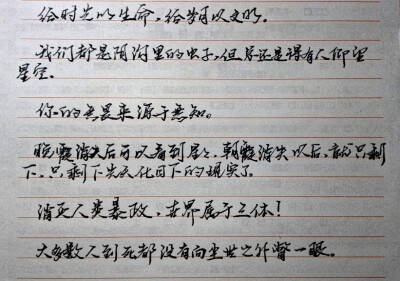 给时光以生命,给岁月以文明。
我们都是阴沟里的虫子,但总还是得有人仰望
星空。
你的無畏来源于無知。
晚霞消失后可以看到星星,朝霞消失以后,就只剩
下,只剩下光天化日下的现实了。
消灭人类暴政,世界属于三体!
大多数人到死都没有向尘世之外瞥一眼。